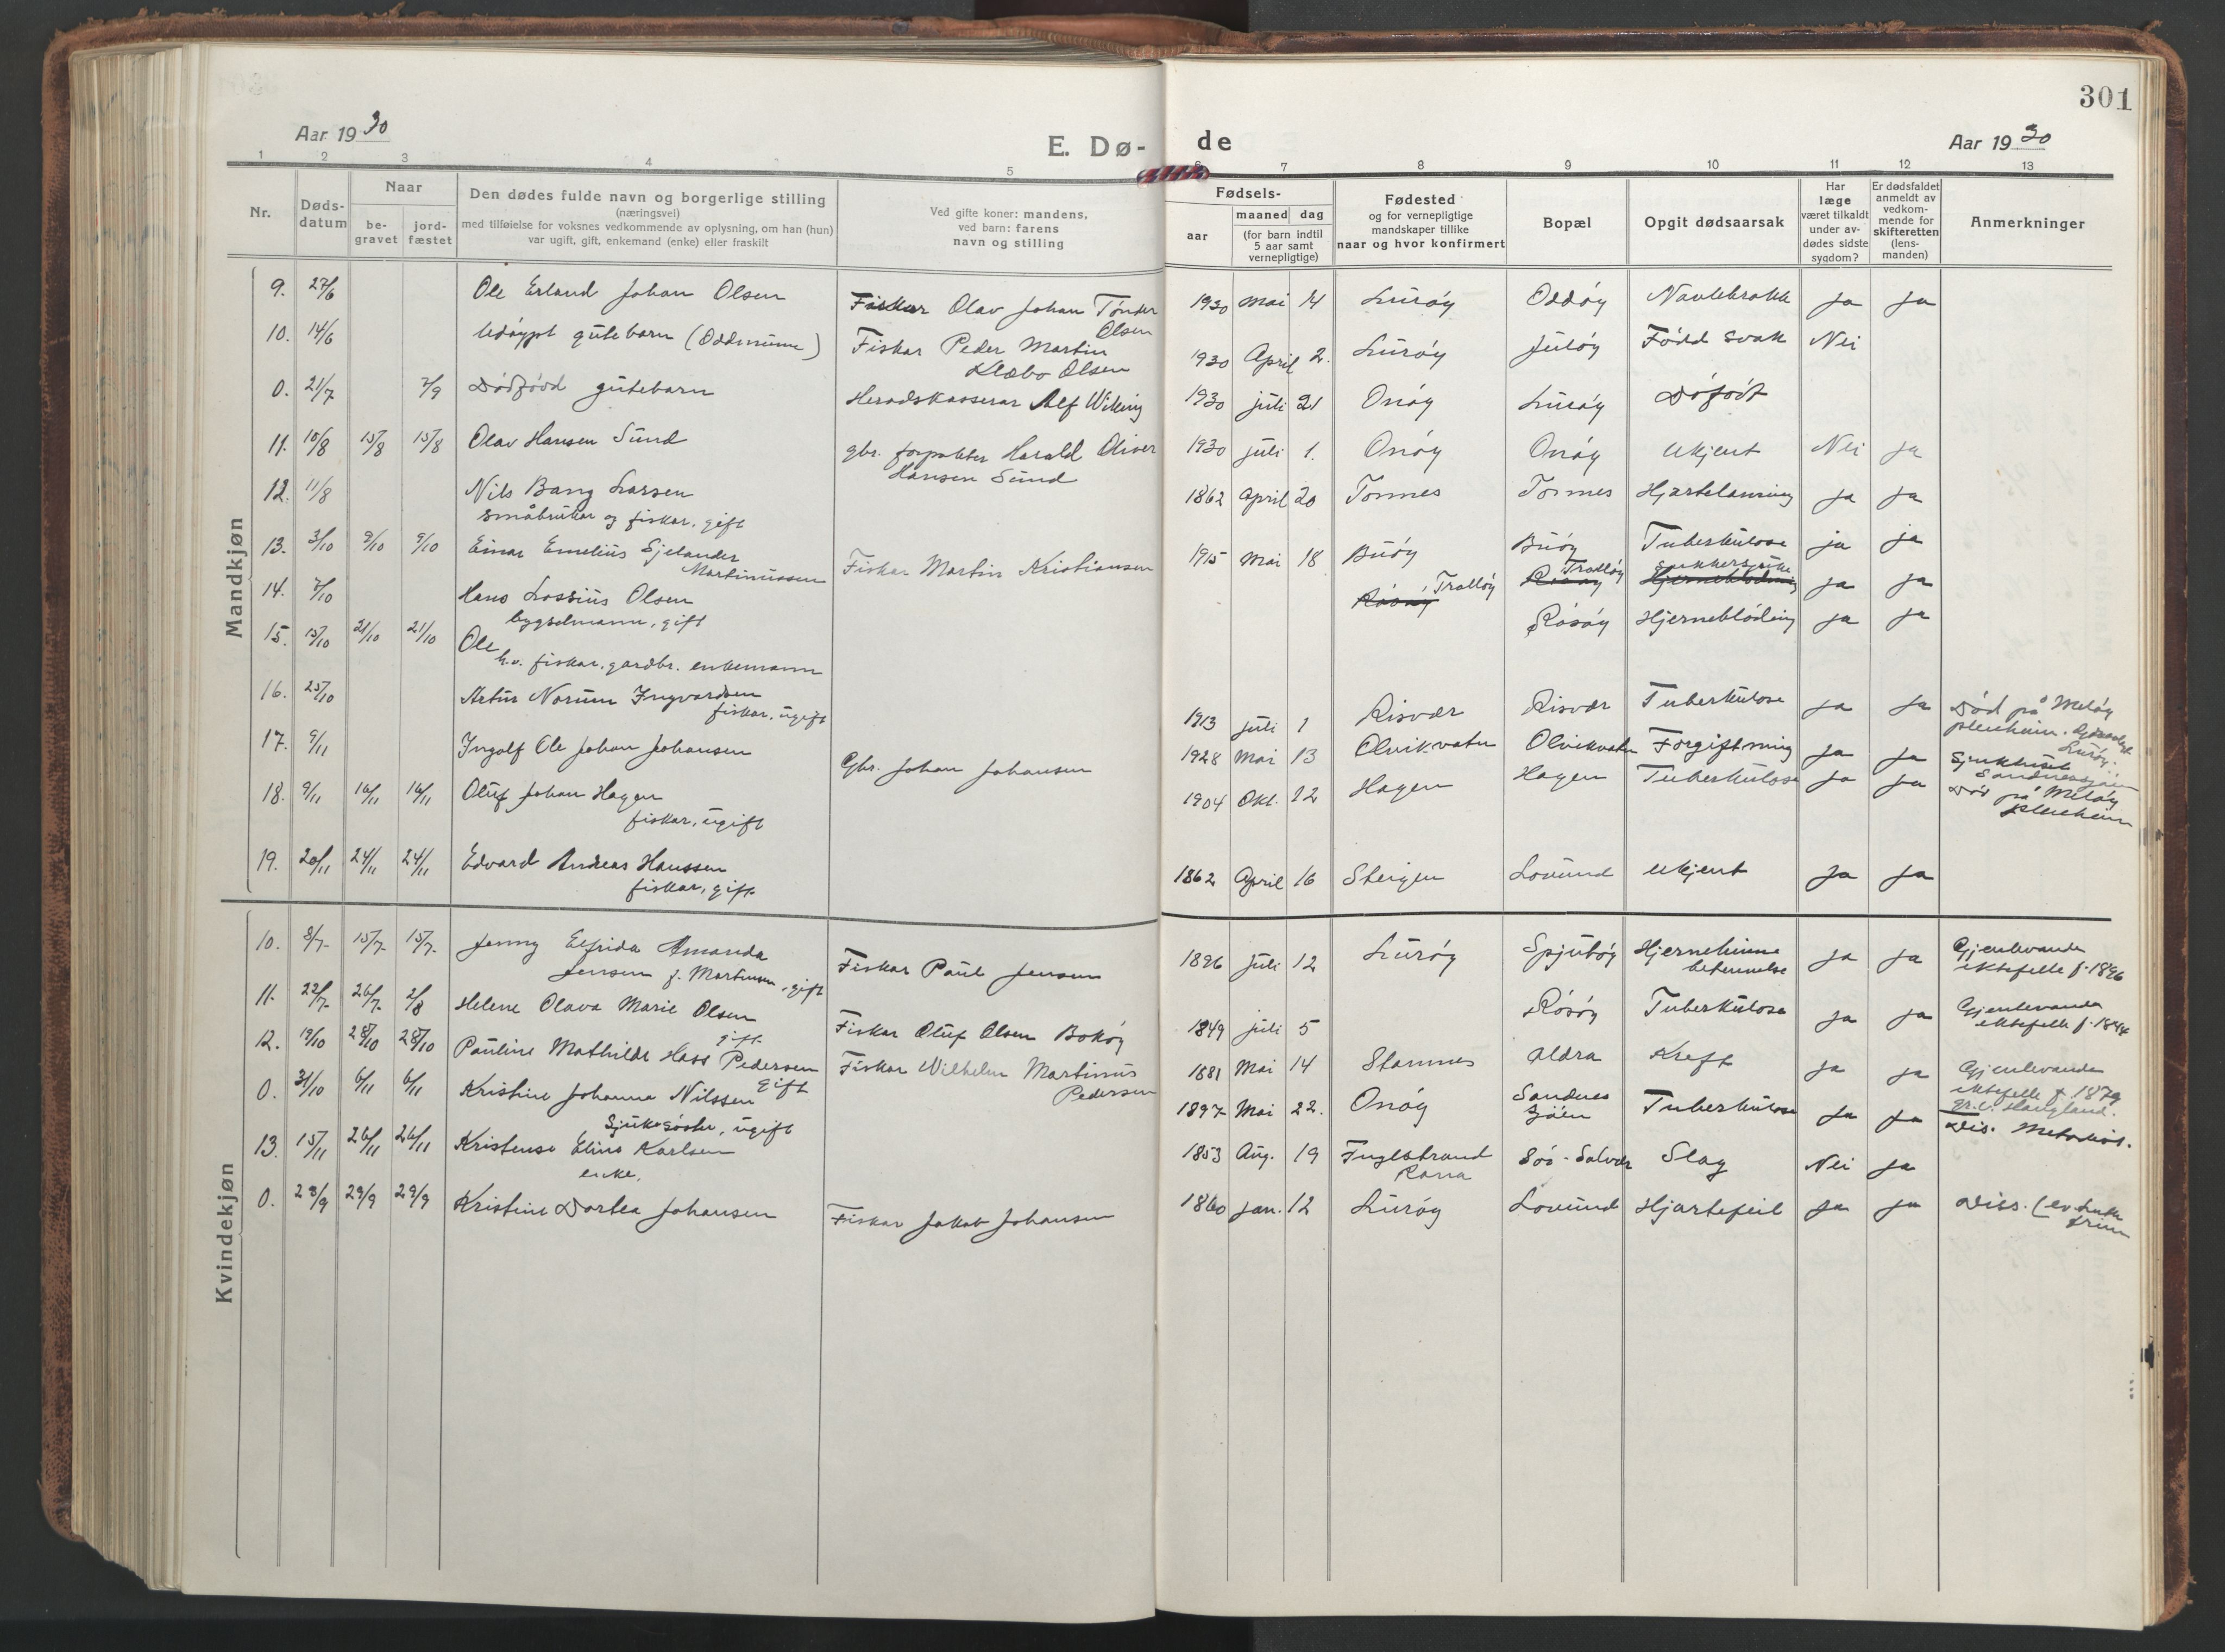 301
Aar 1930
E. Dø-
de
Aar 1930
1 2 3 4 5 6 7 8 9 10 11 12 13
Nr.
Døds-
datum
Naar
be-
gravet
jord-
fæstet
Den dødes fulde navn og borgerlige stilling
(næringsvei)
med tilføielse for voksnes vedkommende av oplysning, om han (hun)
var ugift, gift, enkemand (enke) eller fraskilt
Ved gifte koner: mandens,
ved barn: farens
navn og stilling
Fødsels-
aar
maaned dag
(for barn indtil
5 aar samt
vernepligtige)
Fødested
og for vernepligtige
mandskaper tillike
naar og hvor konfirmert
Bopæl
Opgit dødsaarsak
Har
læge
været tilkaldt
under av-
dødes sidste
sygdom?
Er dødsfaldet
anmeldt av
vedkom-
mende for
skifteretten
(lens-
manden)
Anmerkninger
Mandkjøn
9. 27/6 Ole Erland Johan Olsen Fiskar Olav Johan Tønder
Olsen
1930 Mai 14 Lurøy Oddøy Navlebrokk ja ja
10. 14/6 Udøypt gutebarn (Oddmunn) Fiskar Peder Martin
Klæbo Olsen
1930 April 2. Lurøy Juløy Fødd svak Nei
0. 21/7 7/9 Dødfødd gutebarn Heradskasserar Alf Wiking 1930 juli 21 Onøy Lurøy Døfødt
11. 10/8 15/8 15/8 Olav Hansen Sund gbr. forpakter Harald Oliver
Hansen Sund
1930 juli 1. Onøy Onøy Ukjent Nei ja
12. 11/8 Nils Bang Larsen
småbrukar og fiskar, gift
1862 April 20 Tonnes Tonnes Hjartelamning ja ja
13. 3/10 9/10 9/10 Einar Emelius Sjelander
Martinussen
Fiskar Martin Kristiansen 1915 Mai 18 Buøy Buøy Tuberkulose ja ja
14. 7/10 Hans Lossius Olsen
bygselmann, gift
Rødøy Trolløy Trolløy Sukkersjuke
Hjerneblødning ja ja
15. 15/10 21/10 21/10 Ole
h.v. fiskar, gardbr. enkemann
Rösøy Hjerneblødning ja ja
16. 25/10 Artur Norum Ingvardsen
fiskar, ugift
1913 juli 1 Risvær Risvær Tuberkulose ja ja Død på Meløy
pleieheim.
Lurøy.
17. 9/11 Ingolf Ole Johan Johansen Gbr. Johan Johansen 1928 Mai 13 Olvikvatn Olvikvatn Forgiftning ja ja Sjukhuset
Sandnessjøen
18. 9/11 16/11 16/11 Oluf Johan Hagen
fiskar, ugift
1904 Okt. 12 Hagen Hagen Tuberkulose ja ja Død på Meløy
pleieheim
19. 20/11 24/11 24/11 Edvard Andreas Hanssen
fiskar, gift
1862 April 16 Steigen Lovund Ukjent ja ja
Kvindekjøn
10. 8/7 15/7 15/7 Jenny Elfrida Amanda
Jensen f. Martinsen, gift
Fiskar Paul Jensen 1896 juli 12 Lurøy Spjutøy Hjernehinne
betennelse
ja ja Gjenlevande
ektefelle f. 1896
11. 22/7 26/7 2/8 Helene Olava Marie Olsen
gift
Fiskar Oluf Olsen Bokøy 1849 juli 5 Rösøy Tuberkulose ja ja Gjenlevande
ektefelle f. 1844
12. 19/10 28/10 28/10 Pauline Mathilde Hass Pedersen
gift
Fiskar Wilhelm Martinus
Pedersen
1881 Mai 14 Stannes Aldra Kreft ja ja Gjenlevande
ektefelle f. 1879
0. 31/10 6/11 6/11 Kristine Johanna Nilssen
Sjukesøster, ugift
1897 Mai 22. Onøy Sandnes
sjøen
Tuberkulose ja ja
Dis. Metodist.
13. 15/11 26/11 26/11 Kristense Elins Karlsen
enke.
1853 Aug. 19 Fuglstrand
Rana
Sør-Solvær Slag Nei ja
0. 23/9 29/9 29/9 Kristine Dortea Johansen Fiskar Jakob Johansen 1860 jan. 12 Lurøy Lovund Hjartefeil ja ja Diss. (ev. luth.
frim